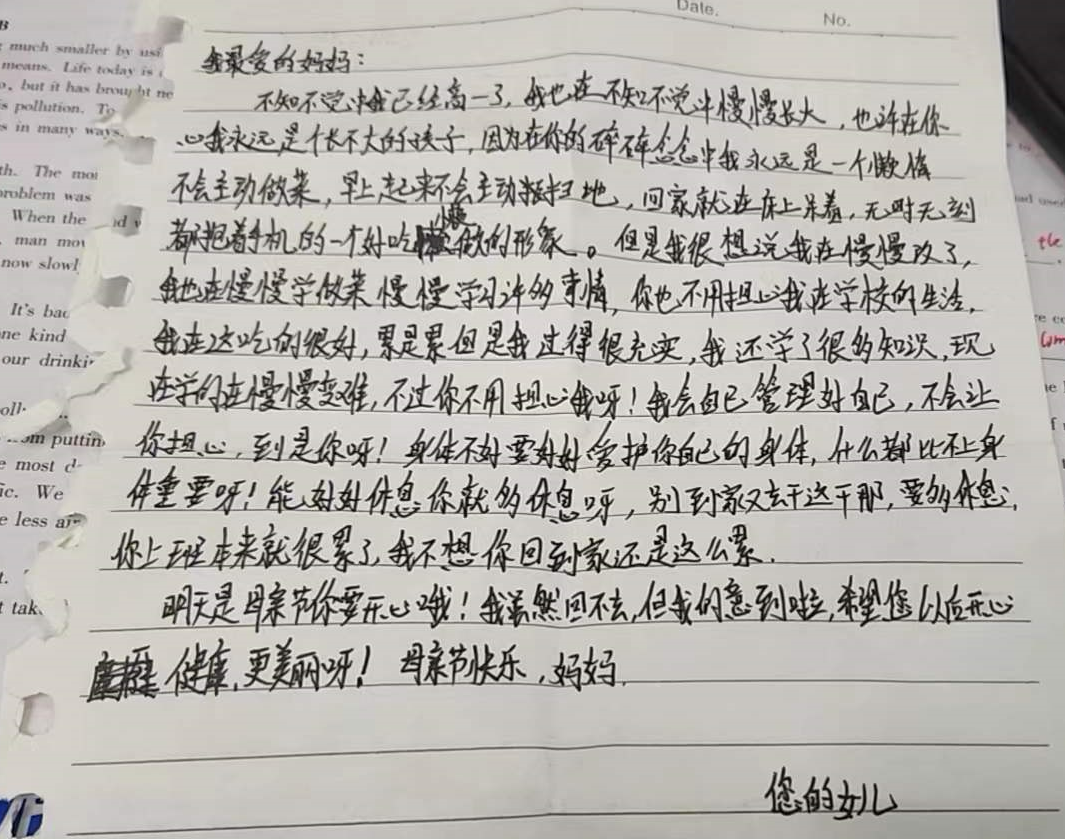 Date.
No.
我最爱的妈妈：
不知不觉中我已经高一了，我也在不知不觉中慢慢长大，也许在你
心我永远是个长不大的孩子，因为在你的碎碎念念中我永远是一个懒惰
不会主动做菜，早上起来不会主动扫地，回家就在床上呆着，无时无刻
都抱着手机的一个好吃懒做的形象。但是我很想说我在慢慢改了，
我也在慢慢学做菜慢慢学习许多事情，你也不用担心我在学校的生活，
我在这吃的很好，累是累但是我过得很充实，我还学了很多知识，现
在学的在慢慢变难，不过你不用担心我呀！我会自己管理好自己，不会让
你担心，到是你呀！身体不好要好好爱护你自己的身体，什么都比不上身
体重要呀！能好好休息你就多休息呀，别到家又去干这干那，要多休息，
你上班本来就很累了，我不想你回到家还是这么累.
明天是母亲节你要开心哦！我虽然回不去，但我的意到啦，希望您以后开心
健康，更美丽呀！母亲节快乐，妈妈.
您的女儿
B
much smaller by usi
means. Life today is
, but it has brought ne
s pollution. To
s in many ways.
th. The mo
roblem was
When the
man mov
now slowl
It's bac
ne kind
our drinki
puttin
e most d
ic. We
e less a
t tak
the